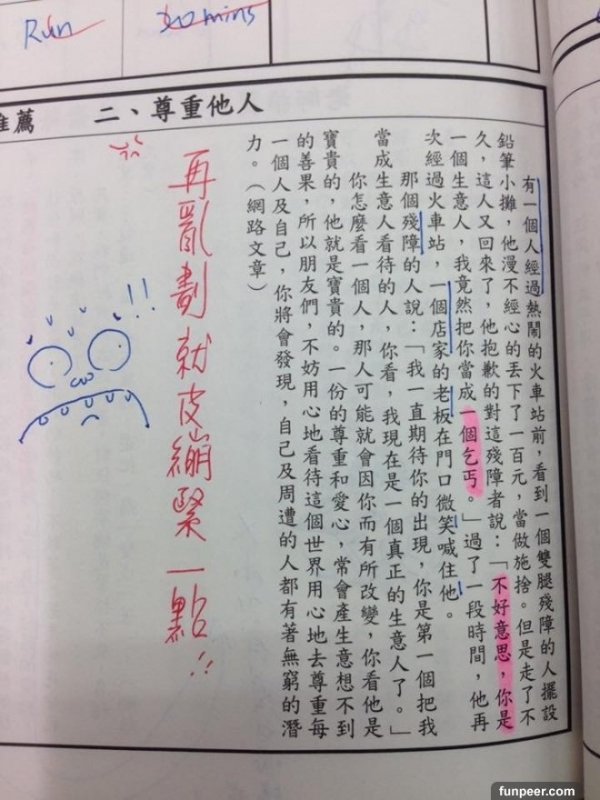 Run
20 mins
推薦
二、尊重他人
有一個人經過熱鬧的火車站前，看到一個雙腿殘障的人擺設
鉛筆小攤，他漫不經心的丟下了一百元，當做施捨。但是走了不
久，這人又回來了，他抱歉的對這殘障者說：「不好意思，你是
一個生意人，我竟然把你當成一個乞丐。」過了一段時間，他再
次經過火車站，一個店家的老板在門口微笑喊住他。
那個殘障的人說：「我一直期待你的出現，你是第一個把我
當成生意人看待的人，你看，我現在是一個真正的生意人了。」
你怎麼看一個人，那人可能就會因你而有所改變，你看他是
寶貴的，他就是寶貴的。一份的尊重和愛心，常會產生意想不到
的善果，所以朋友們，不妨用心地看待這個世界用心地去尊重每
一個人及自己，你將會發現，自己及周遭的人都有著無窮的潛
力。（網路文章）
再亂劃就皮繃緊一點!!
!!
funpeer.com